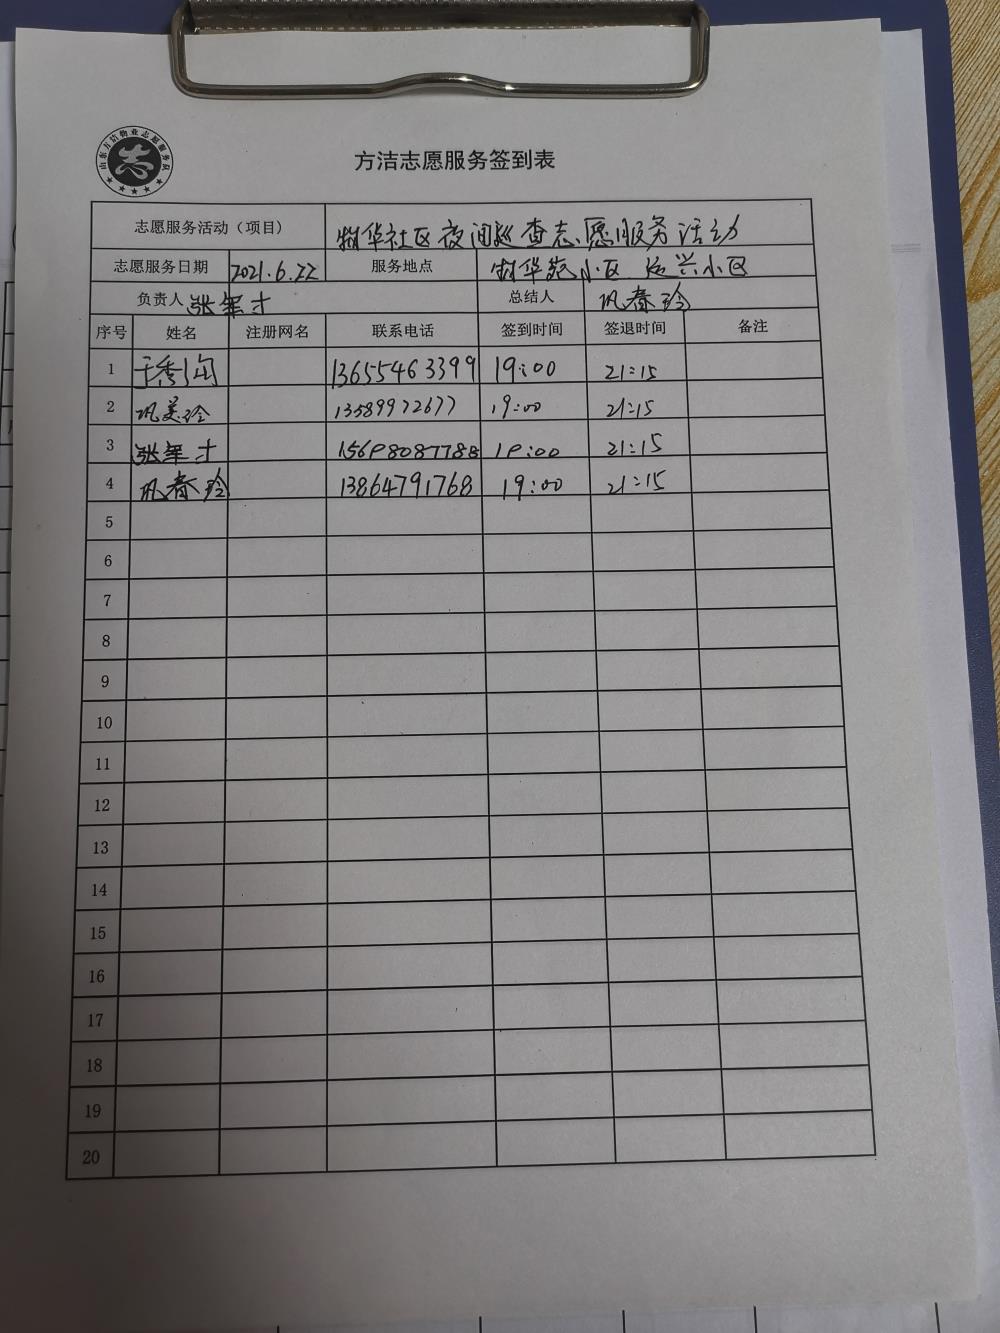 山东方洁物业志愿服务队
志
方洁志愿服务签到表
志愿服务活动（项目） 社区夜间巡查志愿服务活动
志愿服务日期 2021.6.22 服务地点 华苑小区 兴小区
负责人 张军才 总结人 巩春玲
序号 姓名 注册网名 联系电话 签到时间 签退时间 备注
1 于秀 13655463399 19:00 21:15
2 巩美玲 13589972677 19:00 21:15
3 张军才 15698087788 19:00 21:15
4 巩春玲 13864791768 19:00 21:15
5
6
7
8
9
10
11
12
13
14
15
16
17
18
19
20